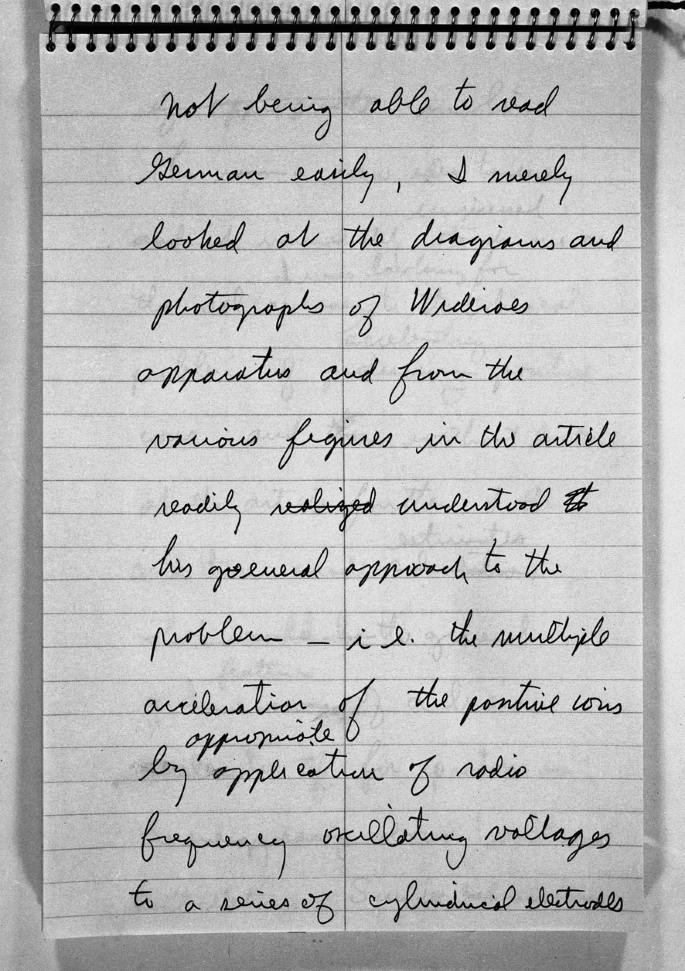 not being able to read
German easily, I merely
looked at the diagrams and
photographs of Wideroes
apparatus and from the
various figures in the article
readily realized understood
his general approach to the
problem – i.e. the multiple
acceleration of the positive ions
appropriate
by application of radio
frequency oscillating voltages
to a series of cylindrical electrodes